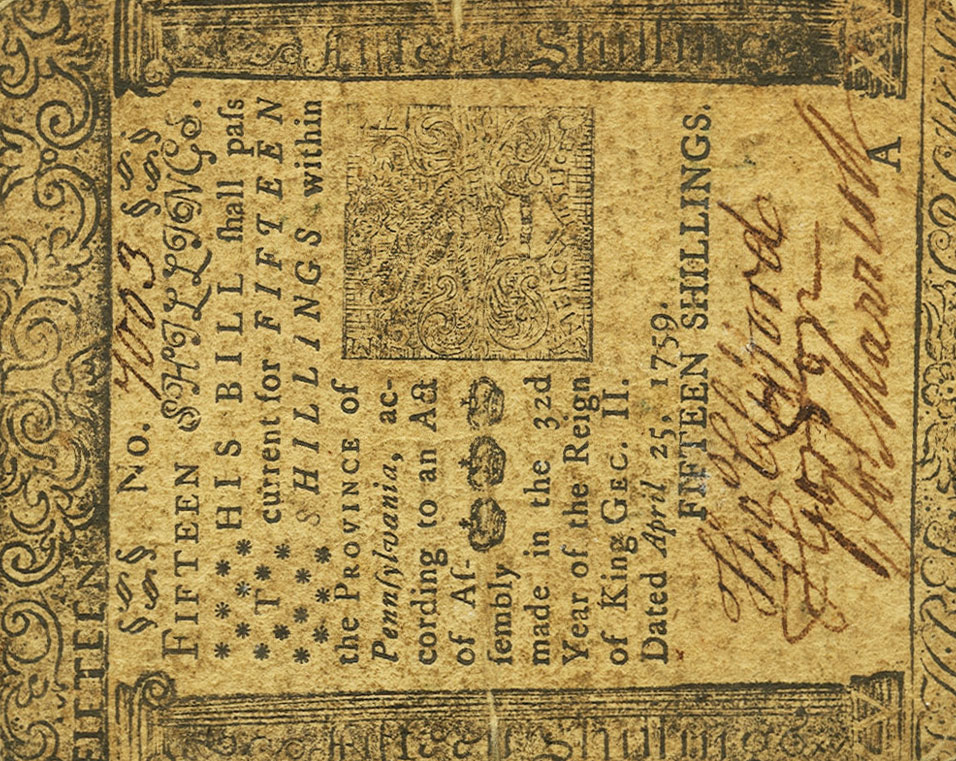 Fifteen Shillings
FIFTEEN
No. 7003
FIFTEEN SHILLINGS.
THIS BILL ſhall paſs
current for FIFTEEN
SHILLINGS within
the PROVINCE of
Pennſylvania, ac-
cording to an Act
of Aſ-
ſembly
made in the 32d
Year of the Reign
of King GEO. II.
Dated April 25, 1759.
FIFTEEN SHILLINGS.
Tho Clifford
A
Fifteen Shillings